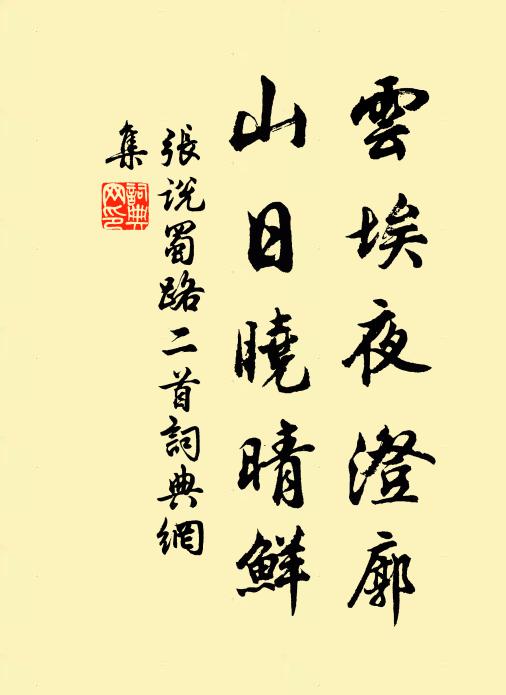 雲埃夜澄廓
山日曉晴鮮
張説蜀路二首詞典網
集
詞典网印